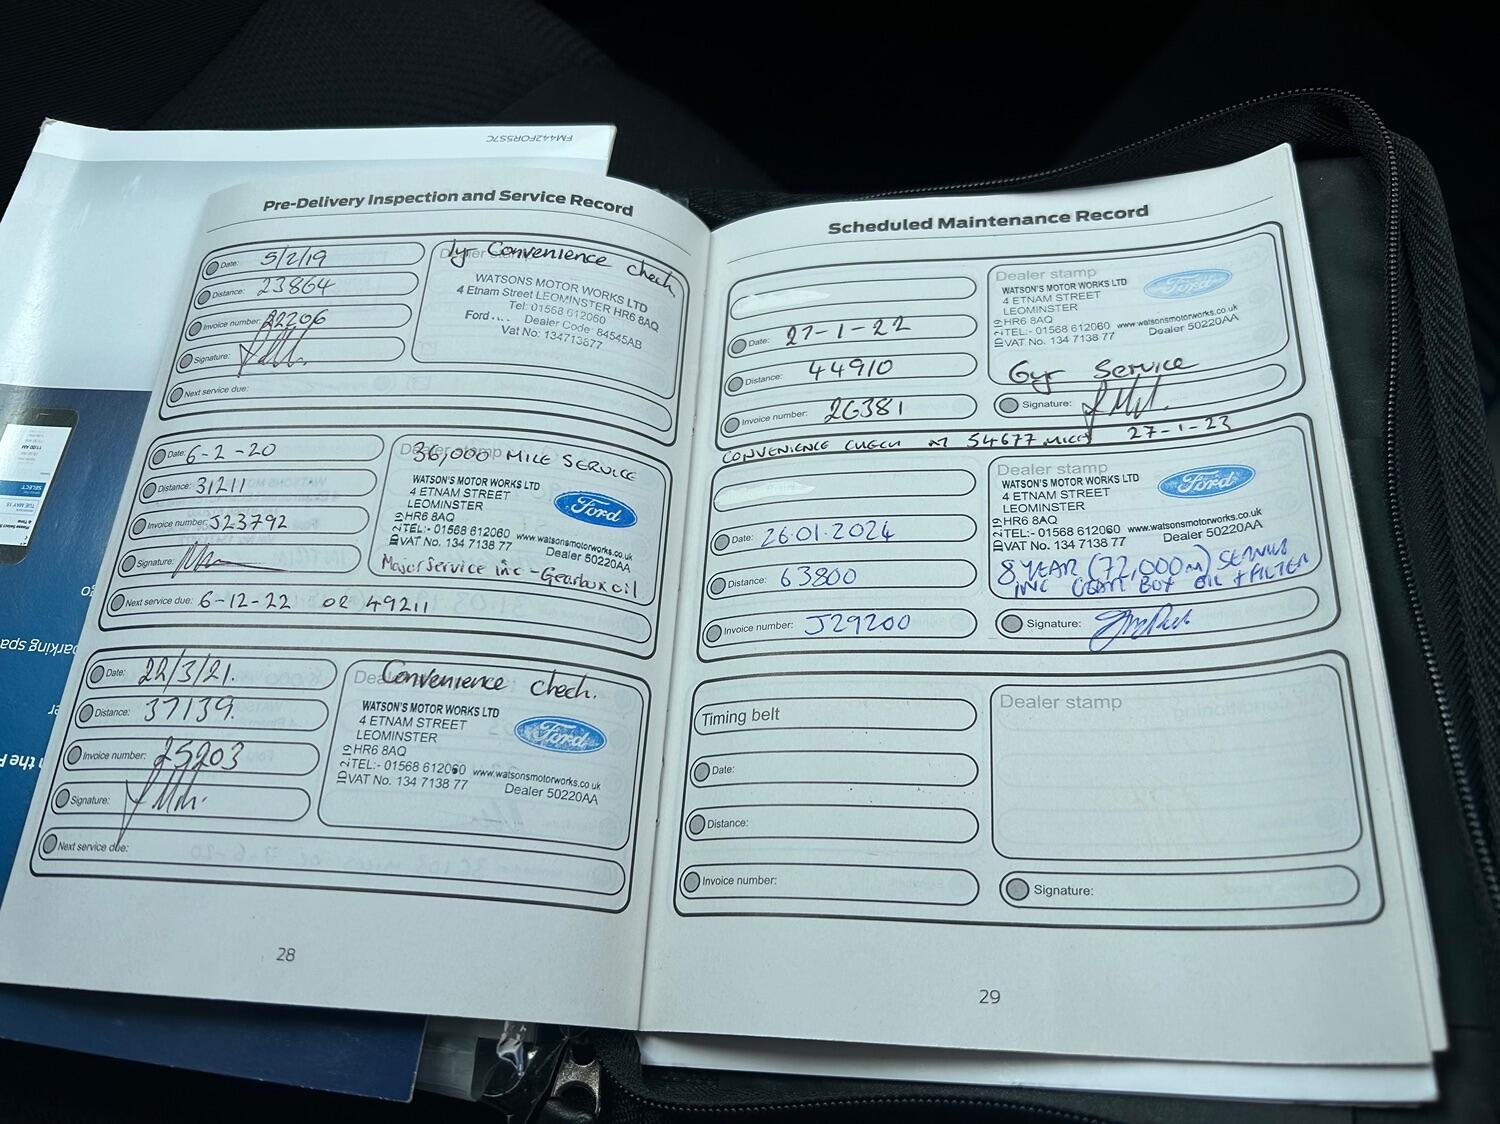 FM442FOR5S7C
Pre-Delivery Inspection and Service Record
Date: 5/2/19
Distance: 23864
Invoice number: 22206
Signature:
Next service due:
1yr Convenience check
WATSONS MOTOR WORKS LTD
4 Etnam Street LEOMINSTER HR6 8AQ
Tel: 01568 612060
Ford.... Dealer Code: 84545AB
Vat No: 134713877
Date: 6-2-20
Distance: 31211
Invoice number: J23792
Signature:
Next service due: 6-12-22 OR 49211
Dealer stamp
36,000 MILE SERVICE
WATSON'S MOTOR WORKS LTD
4 ETNAM STREET
LEOMINSTER
HR6 8AQ
TEL:- 01568 612060 www.watsonsmotorworks.co.uk
VAT No. 134 7138 77 Dealer 50220AA
Ford
Major Service inc - Gearbox oil
Date: 22/3/21.
Distance: 37139.
Invoice number: 25203
Signature:
Next service due:
Convenience check.
WATSON'S MOTOR WORKS LTD
4 ETNAM STREET
LEOMINSTER
HR6 8AQ
TEL:- 01568 612060 www.watsonsmotorworks.co.uk
VAT No. 134 7138 77 Dealer 50220AA
Ford
28
Scheduled Maintenance Record
Date: 27-1-22
Distance: 44910
Invoice number: 26381
Dealer stamp
WATSON'S MOTOR WORKS LTD
4 ETNAM STREET
LEOMINSTER
HR6 8AQ
TEL:- 01568 612060 www.watsonsmotorworks.co.uk
VAT No. 134 7138 77 Dealer 50220AA
Ford
6yr Service
Signature:
CONVENIENCE CHECK AT 54677 MILES 27-1-23
Date: 26.01.2024
Distance: 63800
Invoice number: J29200
Dealer stamp
WATSON'S MOTOR WORKS LTD
4 ETNAM STREET
LEOMINSTER
HR6 8AQ
TEL:- 01568 612060 www.watsonsmotorworks.co.uk
VAT No. 134 7138 77 Dealer 50220AA
Ford
8 YEAR (72,000m) SERVICE
INC GEAR BOX OIL + FILTER
Signature:
Timing belt
Date:
Distance:
Invoice number:
Dealer stamp
Signature:
29